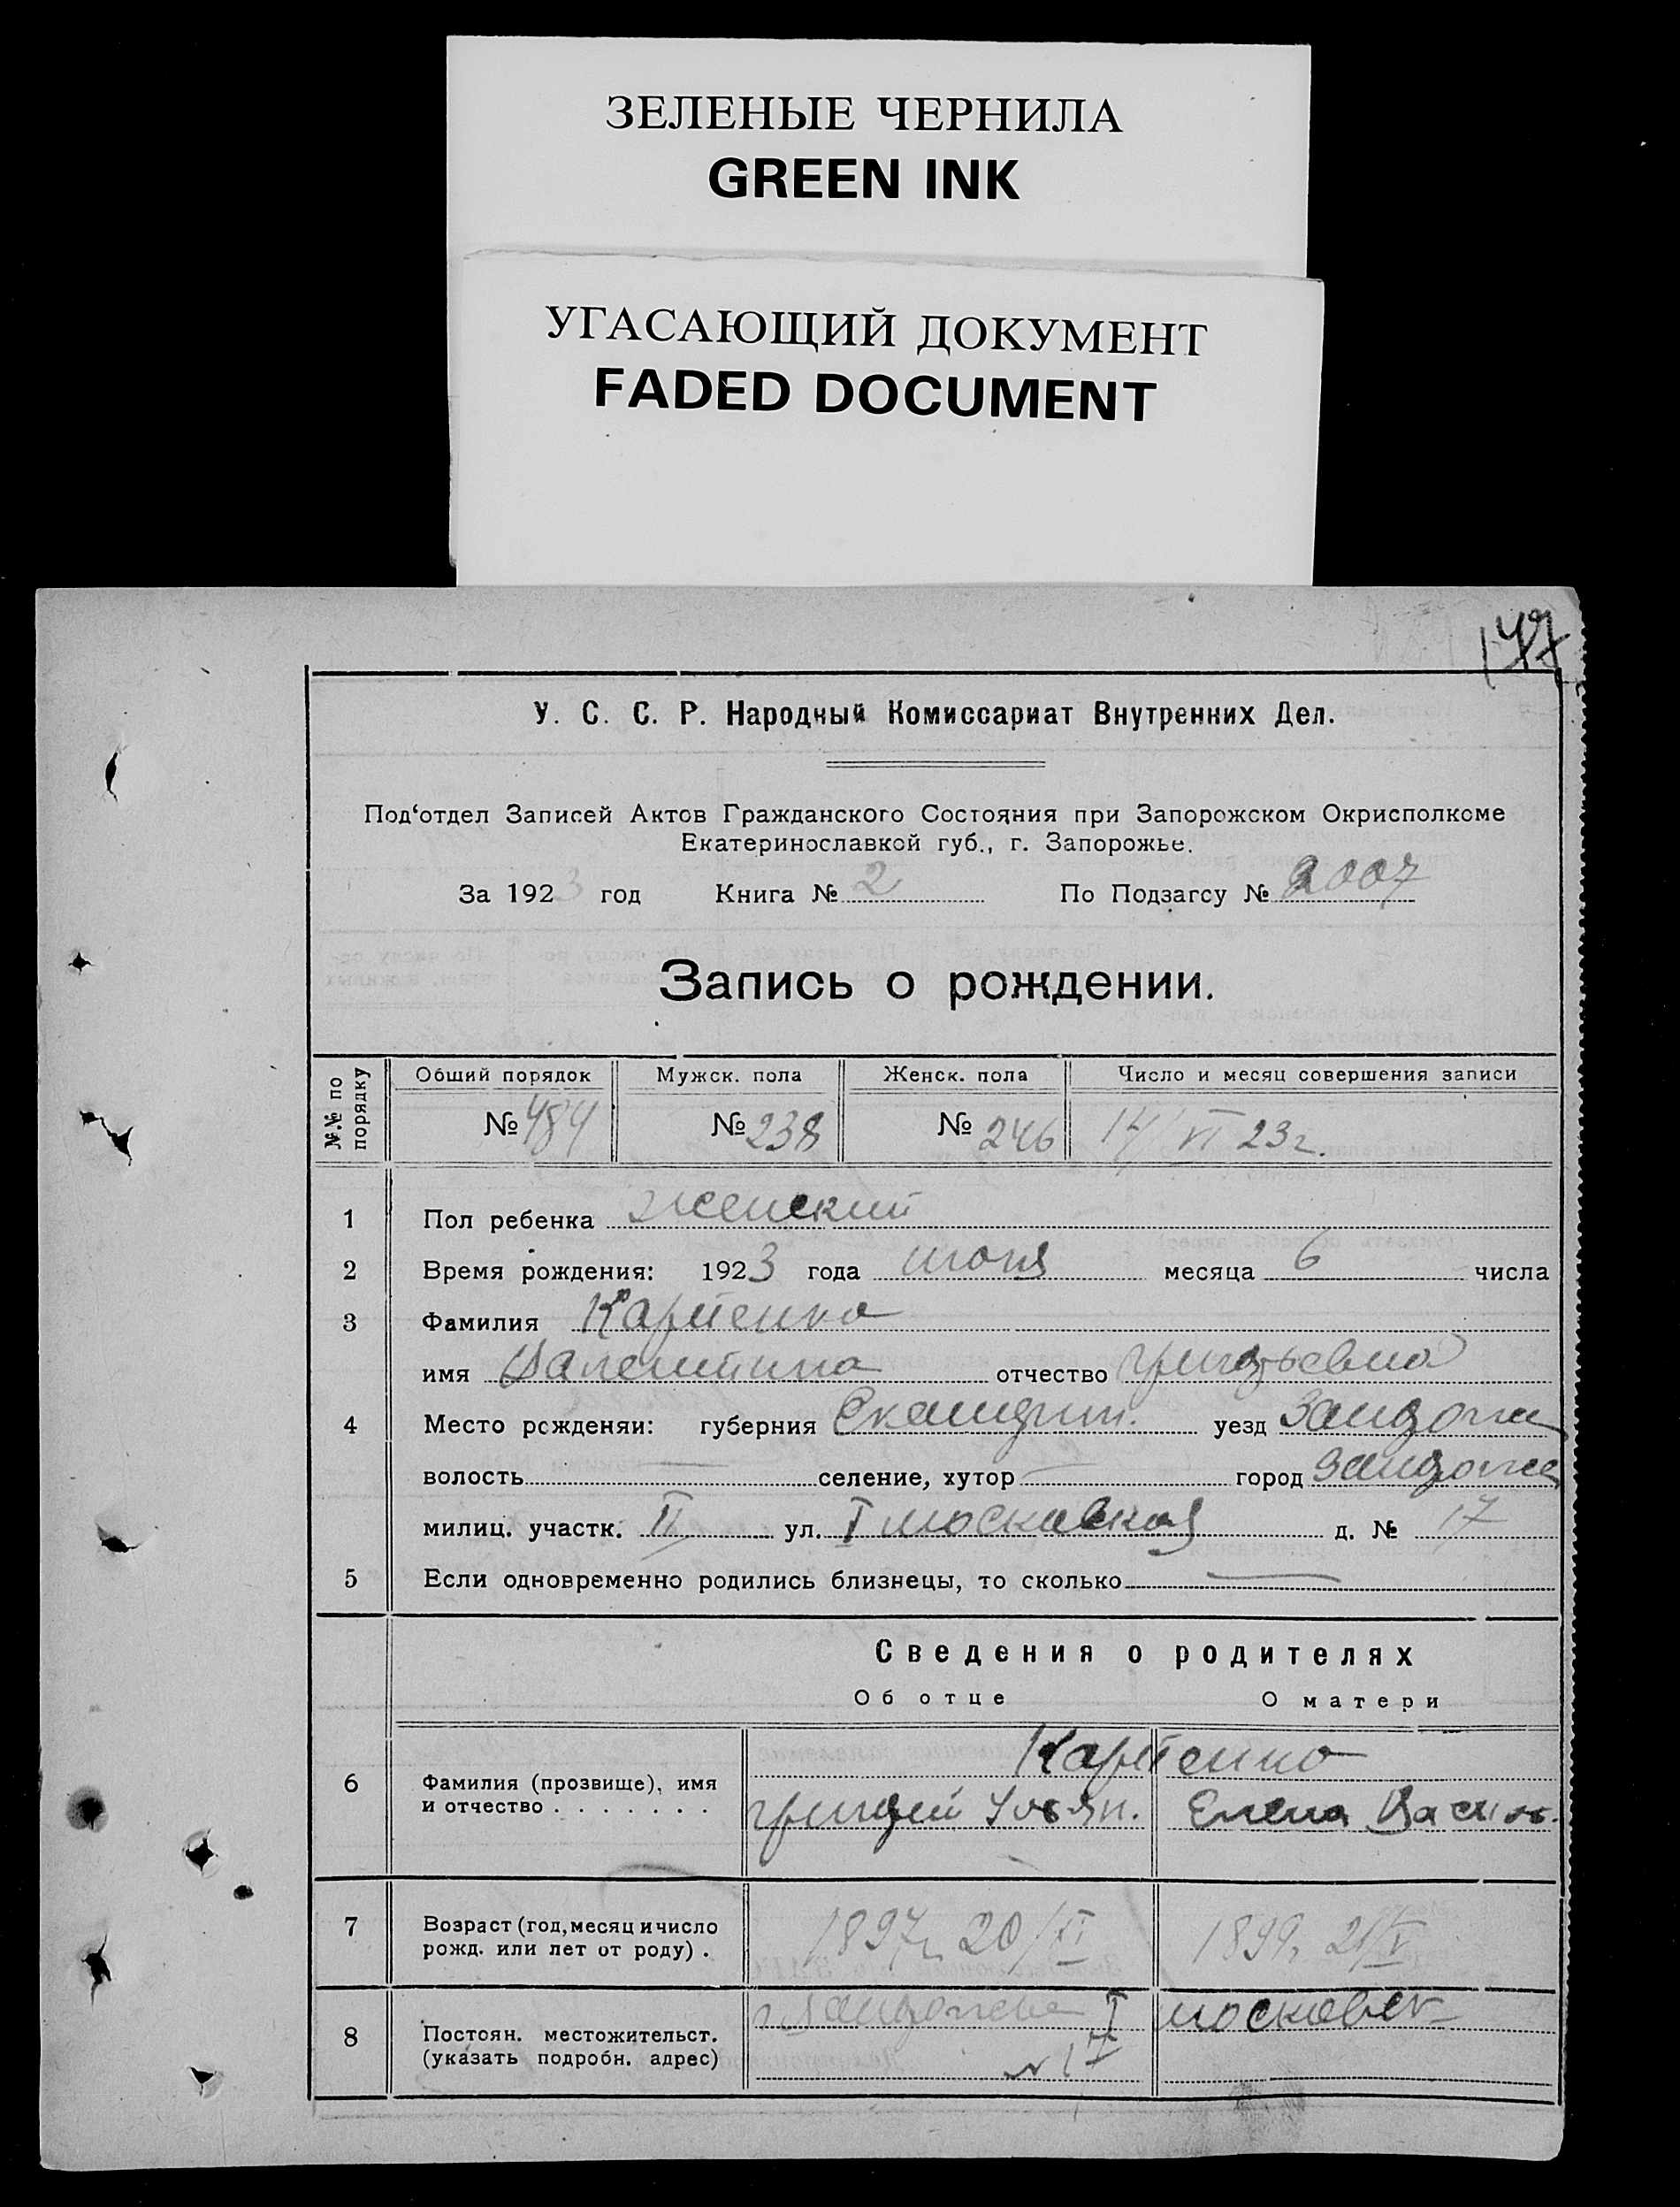 ЗЕЛЕНЫЕ ЧЕРНИЛА
GREEN INK
УГАСАЮЩИЙ ДОКУМЕНТ
FADED DOCUMENT
177
У. С. С. Р. Народный Комиссариат Внутренних Дел.
Под‘отдел Записей Актов Гражданского Состояния при Запорожском Окрисполкоме
Екатеринославкой губ., г. Запорожье.
За 1923 год Книга № 2 По Подзагсу № 2007
Запись о рождении.
№.№ по порядку
Обший порядок Мужск. пола Женск. пола Число и месяц совершения записи
№ 484 № 238 № 246 14/VI 23 г.
1 Пол ребенка женский
2 Время рождения: 1923 года июня месяца 6 числа
3 Фамилия Карпенко
имя Валентина отчество
4 Место рожденяи: губерния уезд
волость — селение, хутор — город
милиц. участк. II ул. I московская д. № 17
5 Если одновременно родились близнецы, то сколько —
Сведения о родителях
Об отце О матери
6 Фамилия (прозвище), имя и отчество . . . . . . .
Карпенко
Елена Васил.
7 Возраст (год, месяц и число рожд. или лет от роду) .
1897 г. 20/XI 1899 г. 21/V
8 Постоян. местожительст. (указать подробн. адрес)
I московск
№ 17